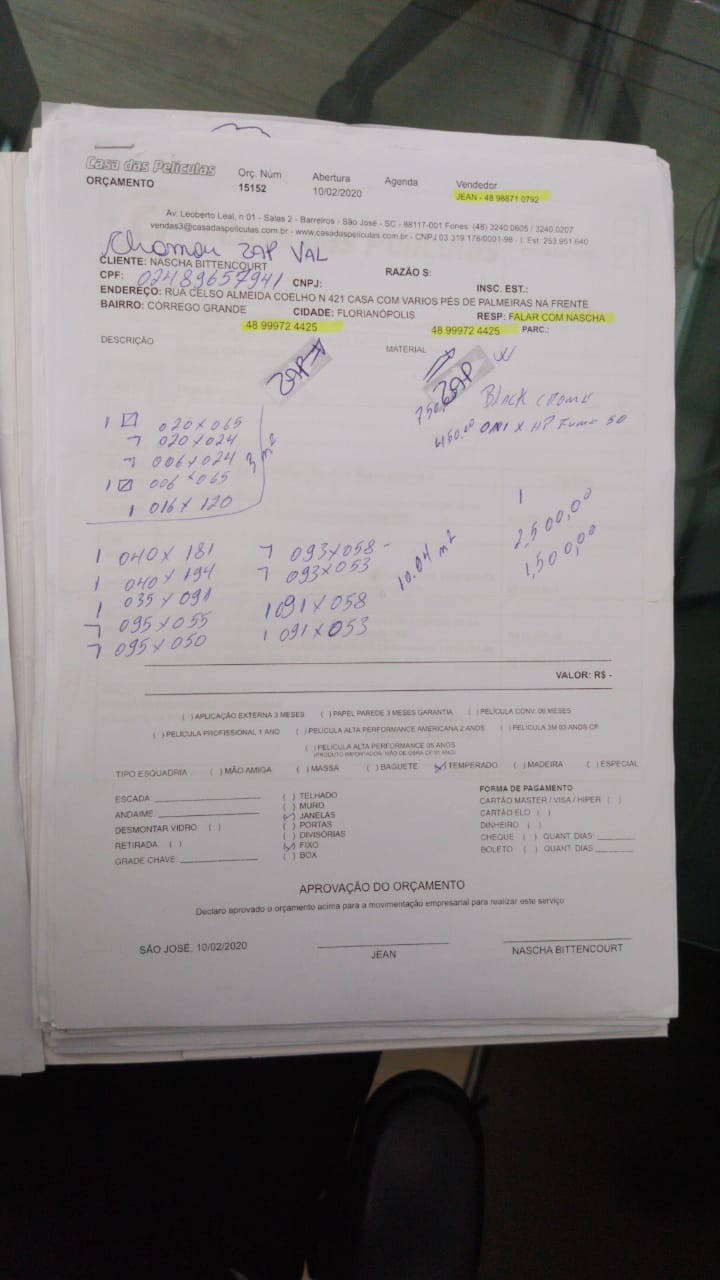 Casa das Películas
ORÇAMENTO
Orç. Núm
15152
Abertura
10/02/2020
Agenda
Vendedor
JEAN - 48 98871 0792
Av. Leoberto Leal, n 01 - Salas 2 - Barreiros - São José - SC - 88117-001 Fones: (48) 3240.0605 / 3240.0207
vendas3@casadaspeliculas.com.br - www.casadaspeliculas.com.br - CNPJ 03.319.178/0001-98 - I. Est: 253.951.640
Chamou ZAP VAL
CLIENTE: NASCHA BITTENCOURT
RAZÃO S:
CPF: 02489657941 CNPJ:
INSC. EST.:
ENDEREÇO: RUA CELSO ALMEIDA COELHO N 421 CASA COM VARIOS PÉS DE PALMEIRAS NA FRENTE
BAIRRO: CÓRREGO GRANDE CIDADE: FLORIANÓPOLIS RESP: FALAR COM NASCHA
48 99972 4425 48 99972 4425 PARC.:
DESCRIÇÃO
MATERIAL
ZAP
ZAP
750, Black
450.00 x HP Fume 50
1 020 x 065
7 020 x 024
7 006 x 024
1 006 x 065
1 016 x 120
3 m²
1 040 x 181 7 093 x 058 -
1 040 x 194 7 093 x 053
1 035 x 091 1 091 x 058
7 095 x 055 1 091 x 053
7 095 x 050
10.04 m²
1
2,500,00
1,500,00
VALOR: R$ -
( ) APLICAÇÃO EXTERNA 3 MESES ( ) PAPEL PAREDE 3 MESES GARANTIA ( ) PELÍCULA CONV. 06 MESES
( ) PELÍCULA PROFISSIONAL 1 ANO ( ) PELÍCULA ALTA PERFORMANCE AMERICANA 2 ANOS ( ) PELÍCULA 3M 03 ANOS CP
( ) PELÍCULA ALTA PERFORMANCE 05 ANOS
(PRODUTO IMPORTADOR, MÃO DE OBRA CP 01 ANO)
TIPO ESQUADRIA ( ) MÃO AMIGA ( ) MASSA ( ) BAGUETE (✓) TEMPERADO ( ) MADEIRA ( ) ESPECIAL
ESCADA:
ANDAIME:
DESMONTAR VIDRO: ( )
RETIRADA: ( )
GRADE CHAVE:
( ) TELHADO
( ) MURO
(✓) JANELAS
( ) PORTAS
( ) DIVISÓRIAS
(✓) FIXO
( ) BOX
FORMA DE PAGAMENTO
CARTÃO MASTER / VISA / HIPER ( )
CARTÃO ELO ( )
DINHEIRO ( )
CHEQUE ( ) QUANT DIAS:
BOLETO ( ) QUANT DIAS:
APROVAÇÃO DO ORÇAMENTO
Declaro aprovado o orçamento acima para a movimentação empresarial para realizar este serviço
SÃO JOSÉ, 10/02/2020
JEAN
NASCHA BITTENCOURT